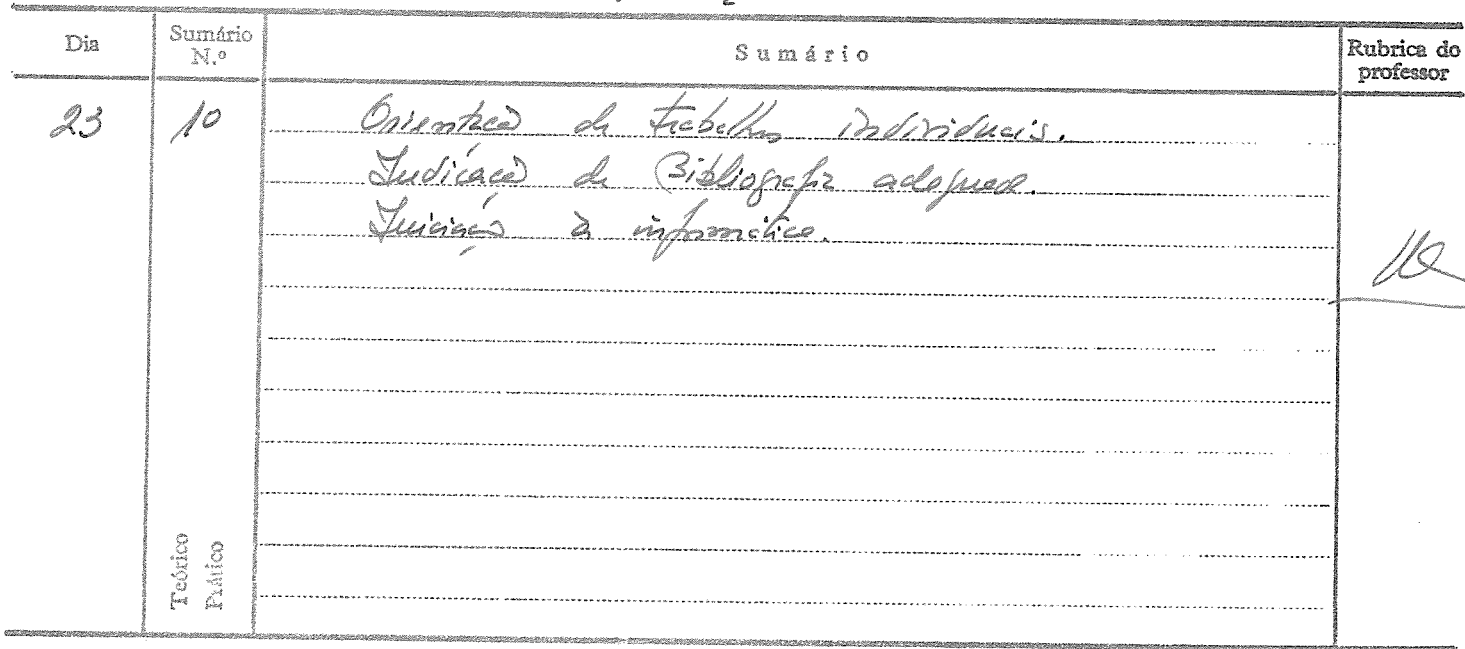 Dia
Sumário N.º
Sumário
Rubrica do professor
23
10
Orientação de trabalhos individuais.
Indicação de Bibliografia adequada.
Iniciação à informática.
Teórico
Prático